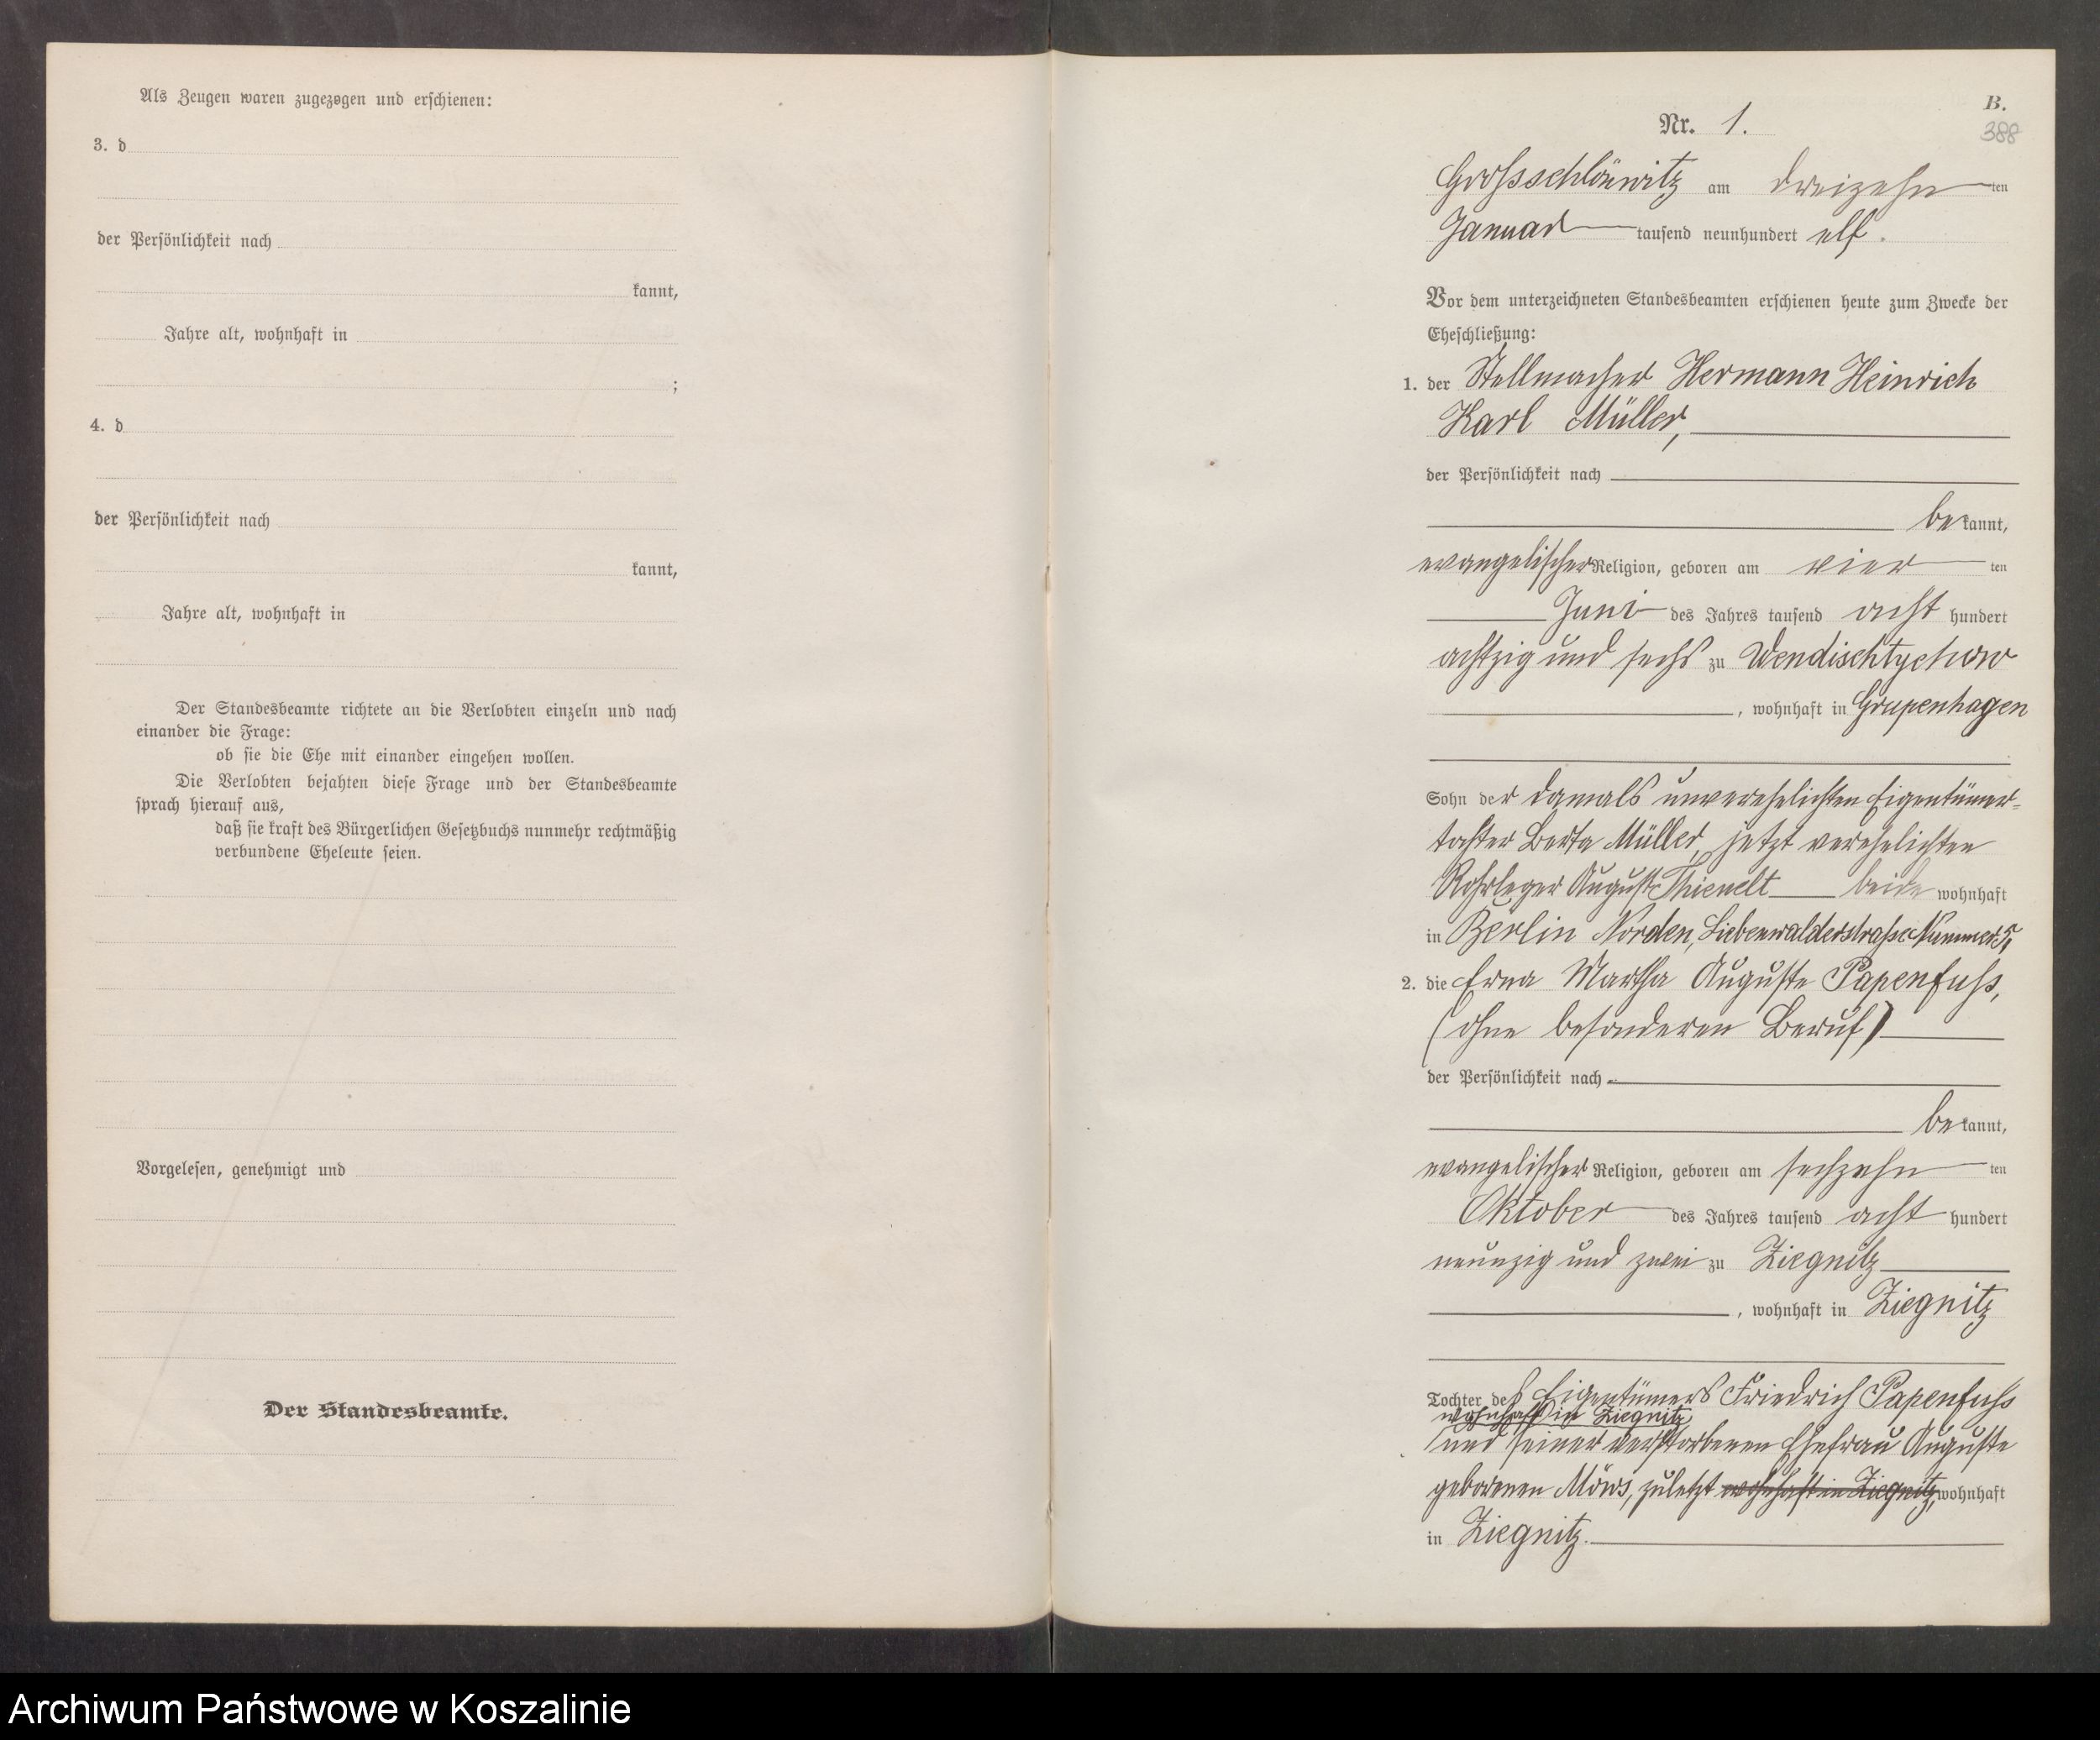 Als Zeugen waren zugezogen und erschienen:
3. d
der Persönlichkeit nach
kannt,
Jahre alt, wohnhaft in
;
4. d
der Persönlichkeit nach
kannt,
Jahre alt, wohnhaft in
Der Standesbeamte richtete an die Verlobten einzeln und nach
einander die Frage:
ob sie die Ehe mit einander eingehen wollen.
Die Verlobten bejahten diese Frage und der Standesbeamte
sprach hierauf aus,
daß sie kraft des Bürgerlichen Gesetzbuchs nunmehr rechtmäßig
verbundene Eheleute seien.
Vorgelesen, genehmigt und
Der Standesbeamte.
B.
Nr. 1.
388
Grossschlönwitz am dreizehn ten
Januar tausend neunhundert elf.
Vor dem unterzeichneten Standesbeamten erschienen heute zum Zwecke der
Eheschließung:
1. der Stellmacher Hermann Heinrich
Karl Müller,
der Persönlichkeit nach
bekannt,
evangelischer Religion, geboren am vier ten
Juni des Jahres tausend acht hundert
achtzig und sechs zu Wendischtychow
, wohnhaft in Grupenhagen
Sohn der damals unverehelichten Eigentümer-
tochter Berta Müller, jetzt verehelichten
Rohrleger August Thienelt beide wohnhaft
in Berlin Norden, Liebenwalderstraße Nummer 5,
2. die Erna Martha Auguste Papenfuss,
(ohne besonderen Beruf)
der Persönlichkeit nach
bekannt,
evangelischer Religion, geboren am sechzehn ten
Oktober des Jahres tausend acht hundert
neunzig und zwei zu Ziegnitz
, wohnhaft in Ziegnitz
Tochter des Eigentümers Friedrich Papenfuss
wohnhaft in Ziegnitz,
und seiner verstorbenen Ehefrau Auguste
geborenen Möws, zuletzt wohnhaft in Ziegnitz, wohnhaft
in Ziegnitz.
Archiwum Państwowe w Koszalinie